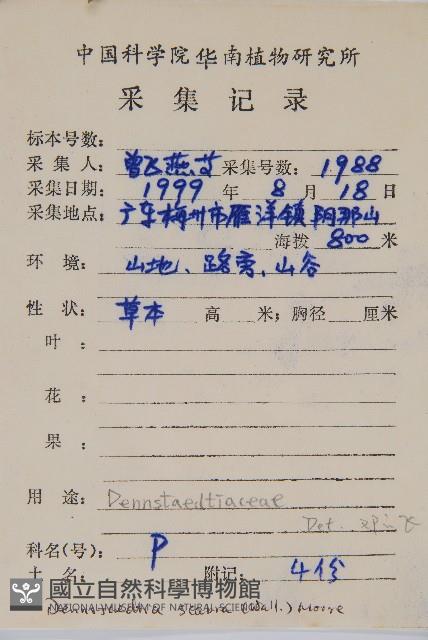 中国科学院华南植物研究所
采集记录
标本号数:
采集人: 曾飞燕艾 采集号数: 1988
采集日期: 1999 年 8 月 18 日
采集地点: 广东梅州市雁洋镇阴那山
海拨 800 米
环境: 山地、路旁、山谷
性状: 草本 高 米; 胸径 厘米
叶:
花:
果:
用途: Dennstaedtiaceae
Det.
科名(号): P
土名: 附记: 4份
國立自然科學博物館
NATIONAL MUSEUM OF NATURAL SCIENCE
scabra (Wall.) Moore